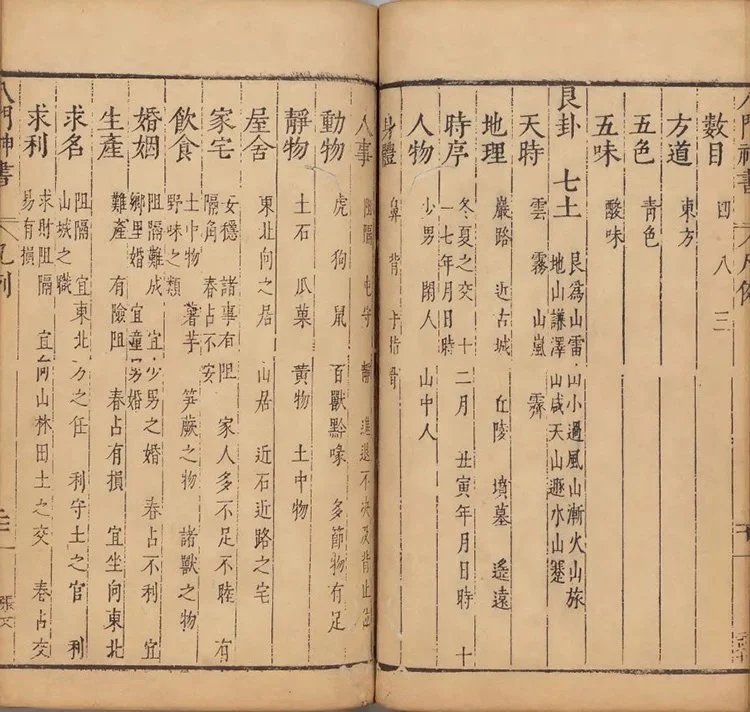 數目 四 八 三
方道 東方
五色 青色
五味 酸味
艮卦 七土 艮為山雷山小過風山漸火山旅
地山謙澤山咸天山遯水山蹇
天時 雲 霧 山嵐 霽
地理 巖路 近古城 丘陵 墳墓 遙遠
時序 冬夏之交 十二月 丑寅年月日時 十
一七年月日時
人物 少男 閑人 山中人
身體 鼻 背 手指 骨
人事 阻隔 屯守 靜 進退不決 反背 止
動物 虎 狗 鼠 百獸黔喙 多節物有足
靜物 土石 瓜菓 黃物 土中物
屋舍 東北向之居 山居 近石近路之宅
家宅 安穩 諸事有阻 家人多不足不睦 有
隔角 春占不安
飲食 土中物 薯芋 笋蕨之物 諸獸之物
野味之類
婚姻 阻隔難成 宜少男之婚 春占不利 宜
鄉里婚 宜童男婚
生產 難產 有險阻 春占有損 宜坐向東北
求名 阻隔 宜東北方之任 利守土之官 利
山城之職
求利 求財阻隔 宜向山林田土之交 春占交
易有損
八門神書 凡例